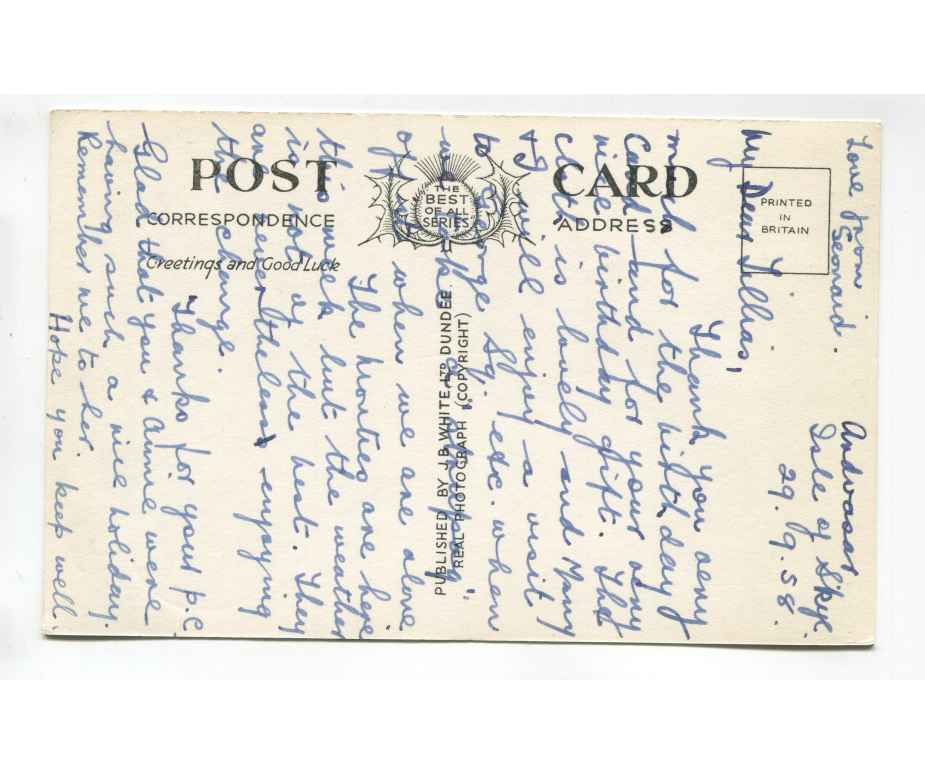 POST CARD
THE
BEST
OF ALL
SERIES
CORRESPONDENCE
ADDRESS
Greetings and Good Luck
PRINTED
IN
BRITAIN
PUBLISHED BY J.B. WHITE LTD DUNDEE.
REAL PHOTOGRAPH (COPYRIGHT)
Ardvasar
Isle of Skye.
29.9.58.
My Dear Lillias,
Thank you very
much for the birthday
card and for your very
nice birthday gift. The
cloth is lovely and Mary
& I will enjoy a visit
to George Sq. etc. when
of when we are alone
The Monties are here
this week but the weather
is not of the best. They
are nevertheless enjoying
the change.
Thanks for your p.c.
Glad that you & Annie were
having such a nice holiday.
Remember me to her.
Hope you keep well.
Love from
Seonaid.